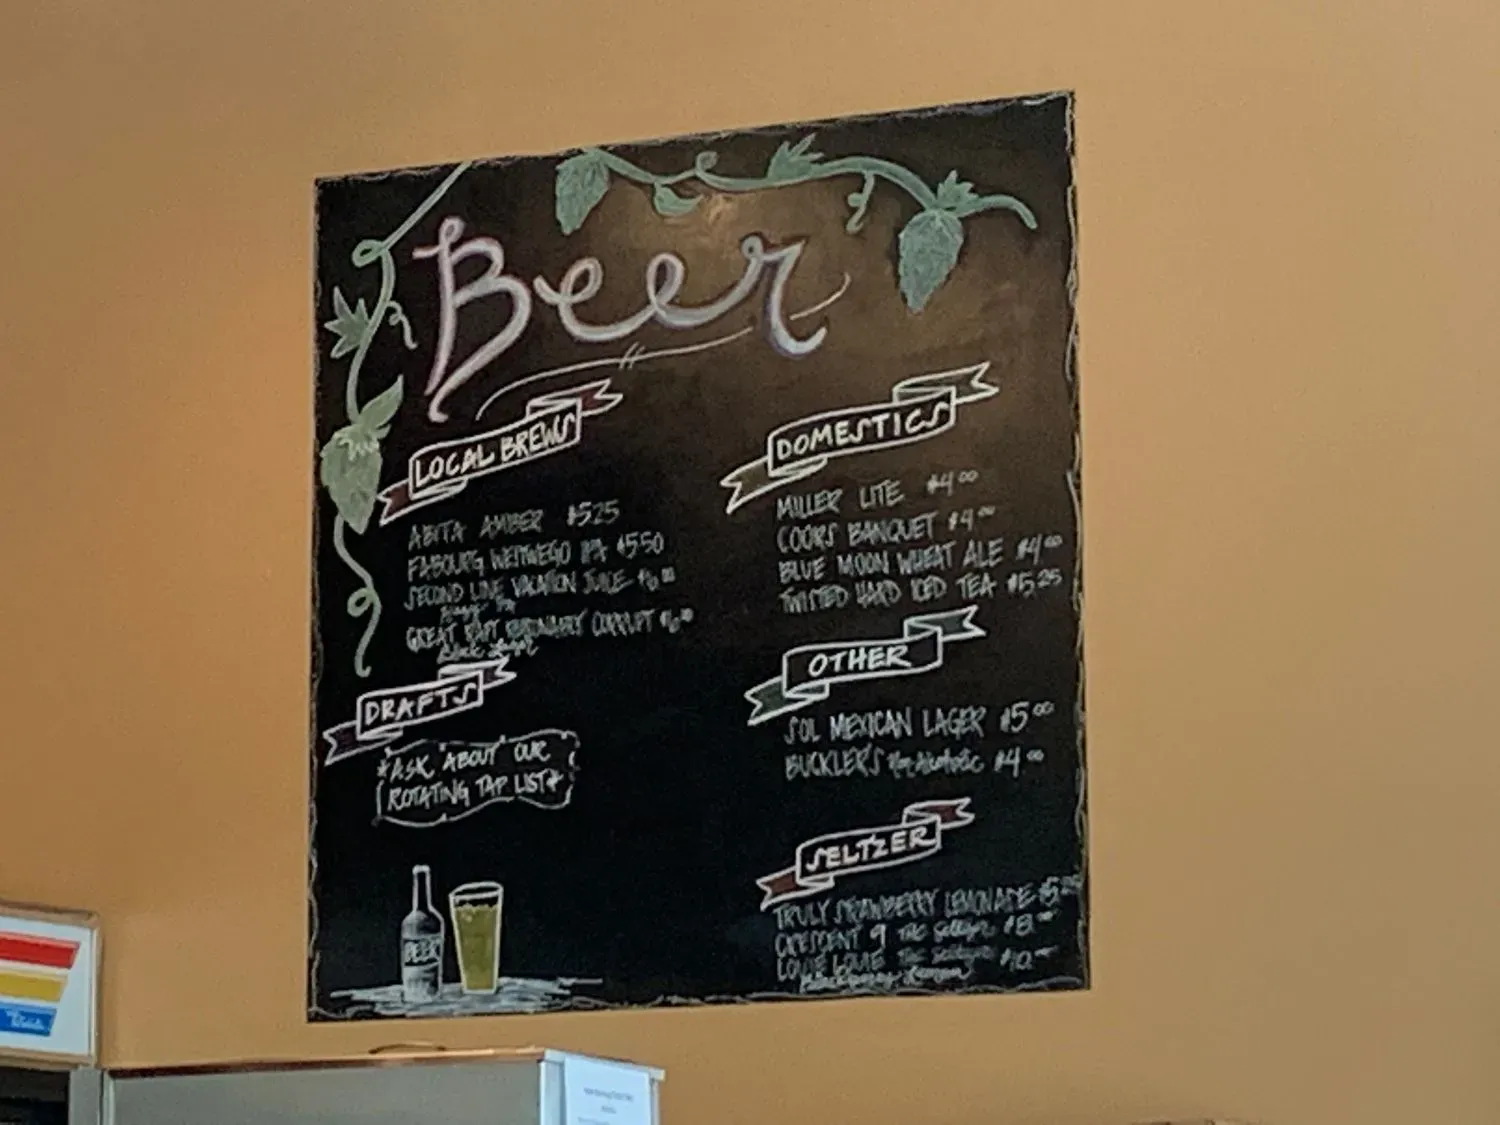 Beer
LOCAL BREWS
ABITA AMBER $5.25
FABOURG WESTWEGO IPA $5.50
SECOND LINE VACATION JUICE $6.00
GREAT RAFT CORRUPT $6.00
Black Lager
DRAFTS
*ASK ABOUT OUR
ROTATING TAP LIST*
BEER
DOMESTICS
MILLER LITE $4.00
COORS BANQUET $4.00
BLUE MOON WHEAT ALE $4.00
TWISTED HARD ICED TEA $5.25
OTHER
SOL MEXICAN LAGER $5.00
BUCKLER'S Non-Alcoholic $4.00
SELTZER
TRULY STRAWBERRY LEMONADE $5.25
CRESCENT 9 THC Seltzer $8.00
LOUIE LOUIE THC Seltzer $10.00
Lemon